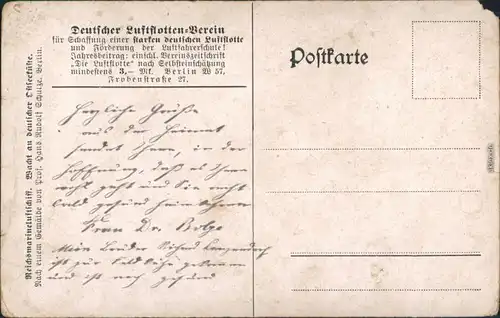 Deutscher Luftflotten-Verein
für Schaffung einer starken deutschen Luftflotte
und Förderung der Luftfahrerschule!
Jahresbeitrag: einschl. Vereinszeitschrift
„Die Luftflotte" nach Selbsteinschätzung
mindestens 3,— Mk. Berlin W 57,
Frobenstraße 27.
Postkarte
Reichsmarineluftschiff. Wacht an deutscher Ostseeküste.
Nach einem Gemälde von Prof. Hans Rudolf Schulze, Berlin.
Herzliche Grüße
aus der Heimat
sendet Ihnen, in der
Hoffnung, daß es Ihnen
recht geht und Sie recht
bald gesund heimkehren
Frau Dr.
Mein Bruder
ist zur Feld gekommen
und ist noch gesund